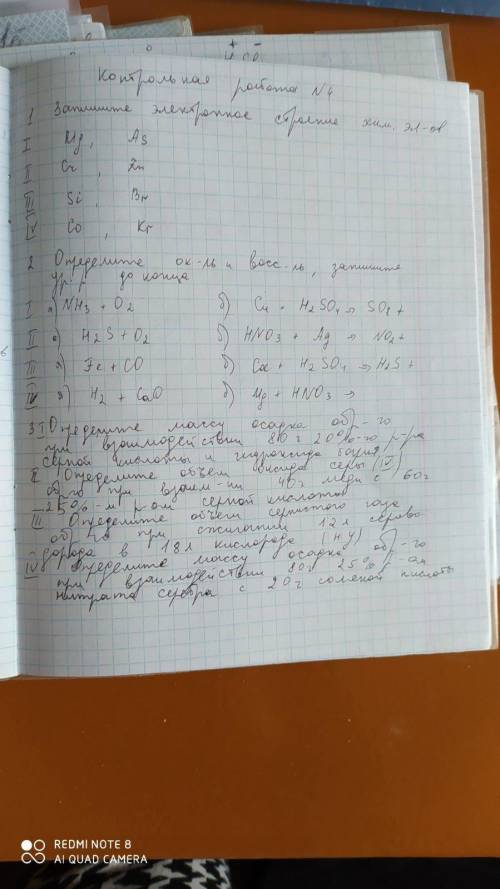 Контрольная работа N4
1 Запишите электронное строение хим. эл-ов
I Mg, As
II Cr, Zn
III Si, Br
IV Co, Kr
2 Определите ок-ль и восс-ль, запишите
ур. р до конца
I а) NH3 + O2 б) Cu + H2SO4 → SO2 +
II а) H2S + O2 б) HNO3 + Ag → NO2 +
III а) Fe + CO б) Ca + H2SO4 → H2S +
IV а) H2 + CaO б) Mg + HNO3 →
3 I Определите массу осадка обр-го
при взаимодействии 80 г 20%-го р-ра
серной кислоты и гидроксида бария
II Определите объём оксида серы (IV)
об-го при взаим-ии 40г меди с 60г
25%-м р-ом серной кислоты
III Определите объём сернистого газа
об-го при сжигании 12л серово-
дорода в 18л кислорода (н.у)
IV Определите массу осадка обр-го
при взаимодействии 80г 25%
нитрата серебра с 20г соляной кислоты
REDMI NOTE 8
AI QUAD CAMERA